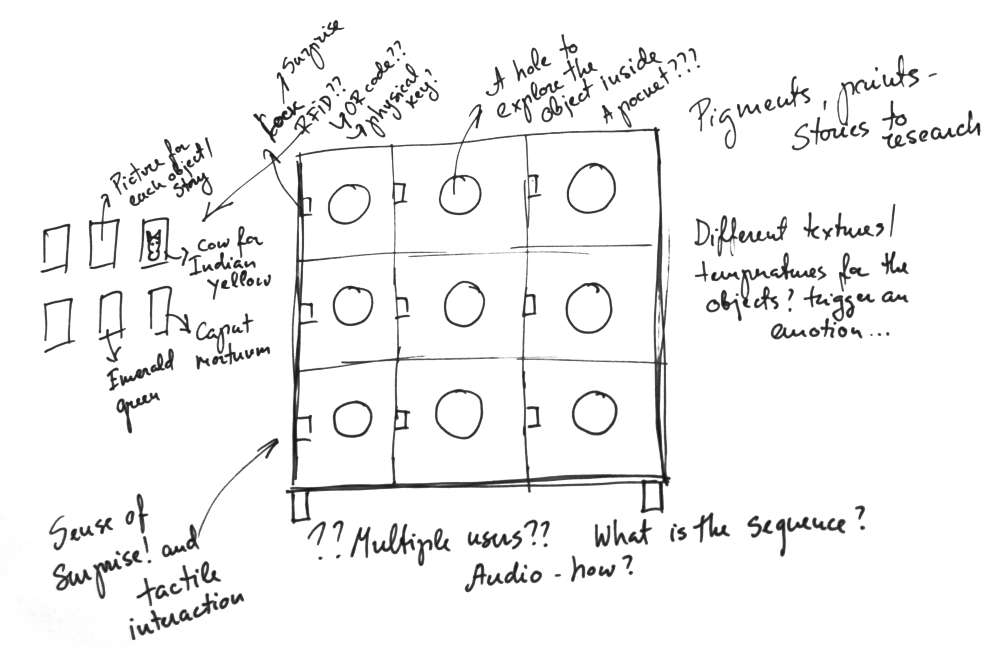 Surprise
Lock
RFID??
QR code??
physical
key?
A hole to
explore the
object inside
A pocket???
Pigments, paints -
Stories to
research
Picture for
each object/
story
Cow for
Indian
yellow
Caput
mortuum
Emerald
green
Different textures/
temperatures for the
objects? trigger an
emotion...
Sense of
Surprise! and
tactile
interaction
??Multiple users??
What is the sequence?
Audio - how?